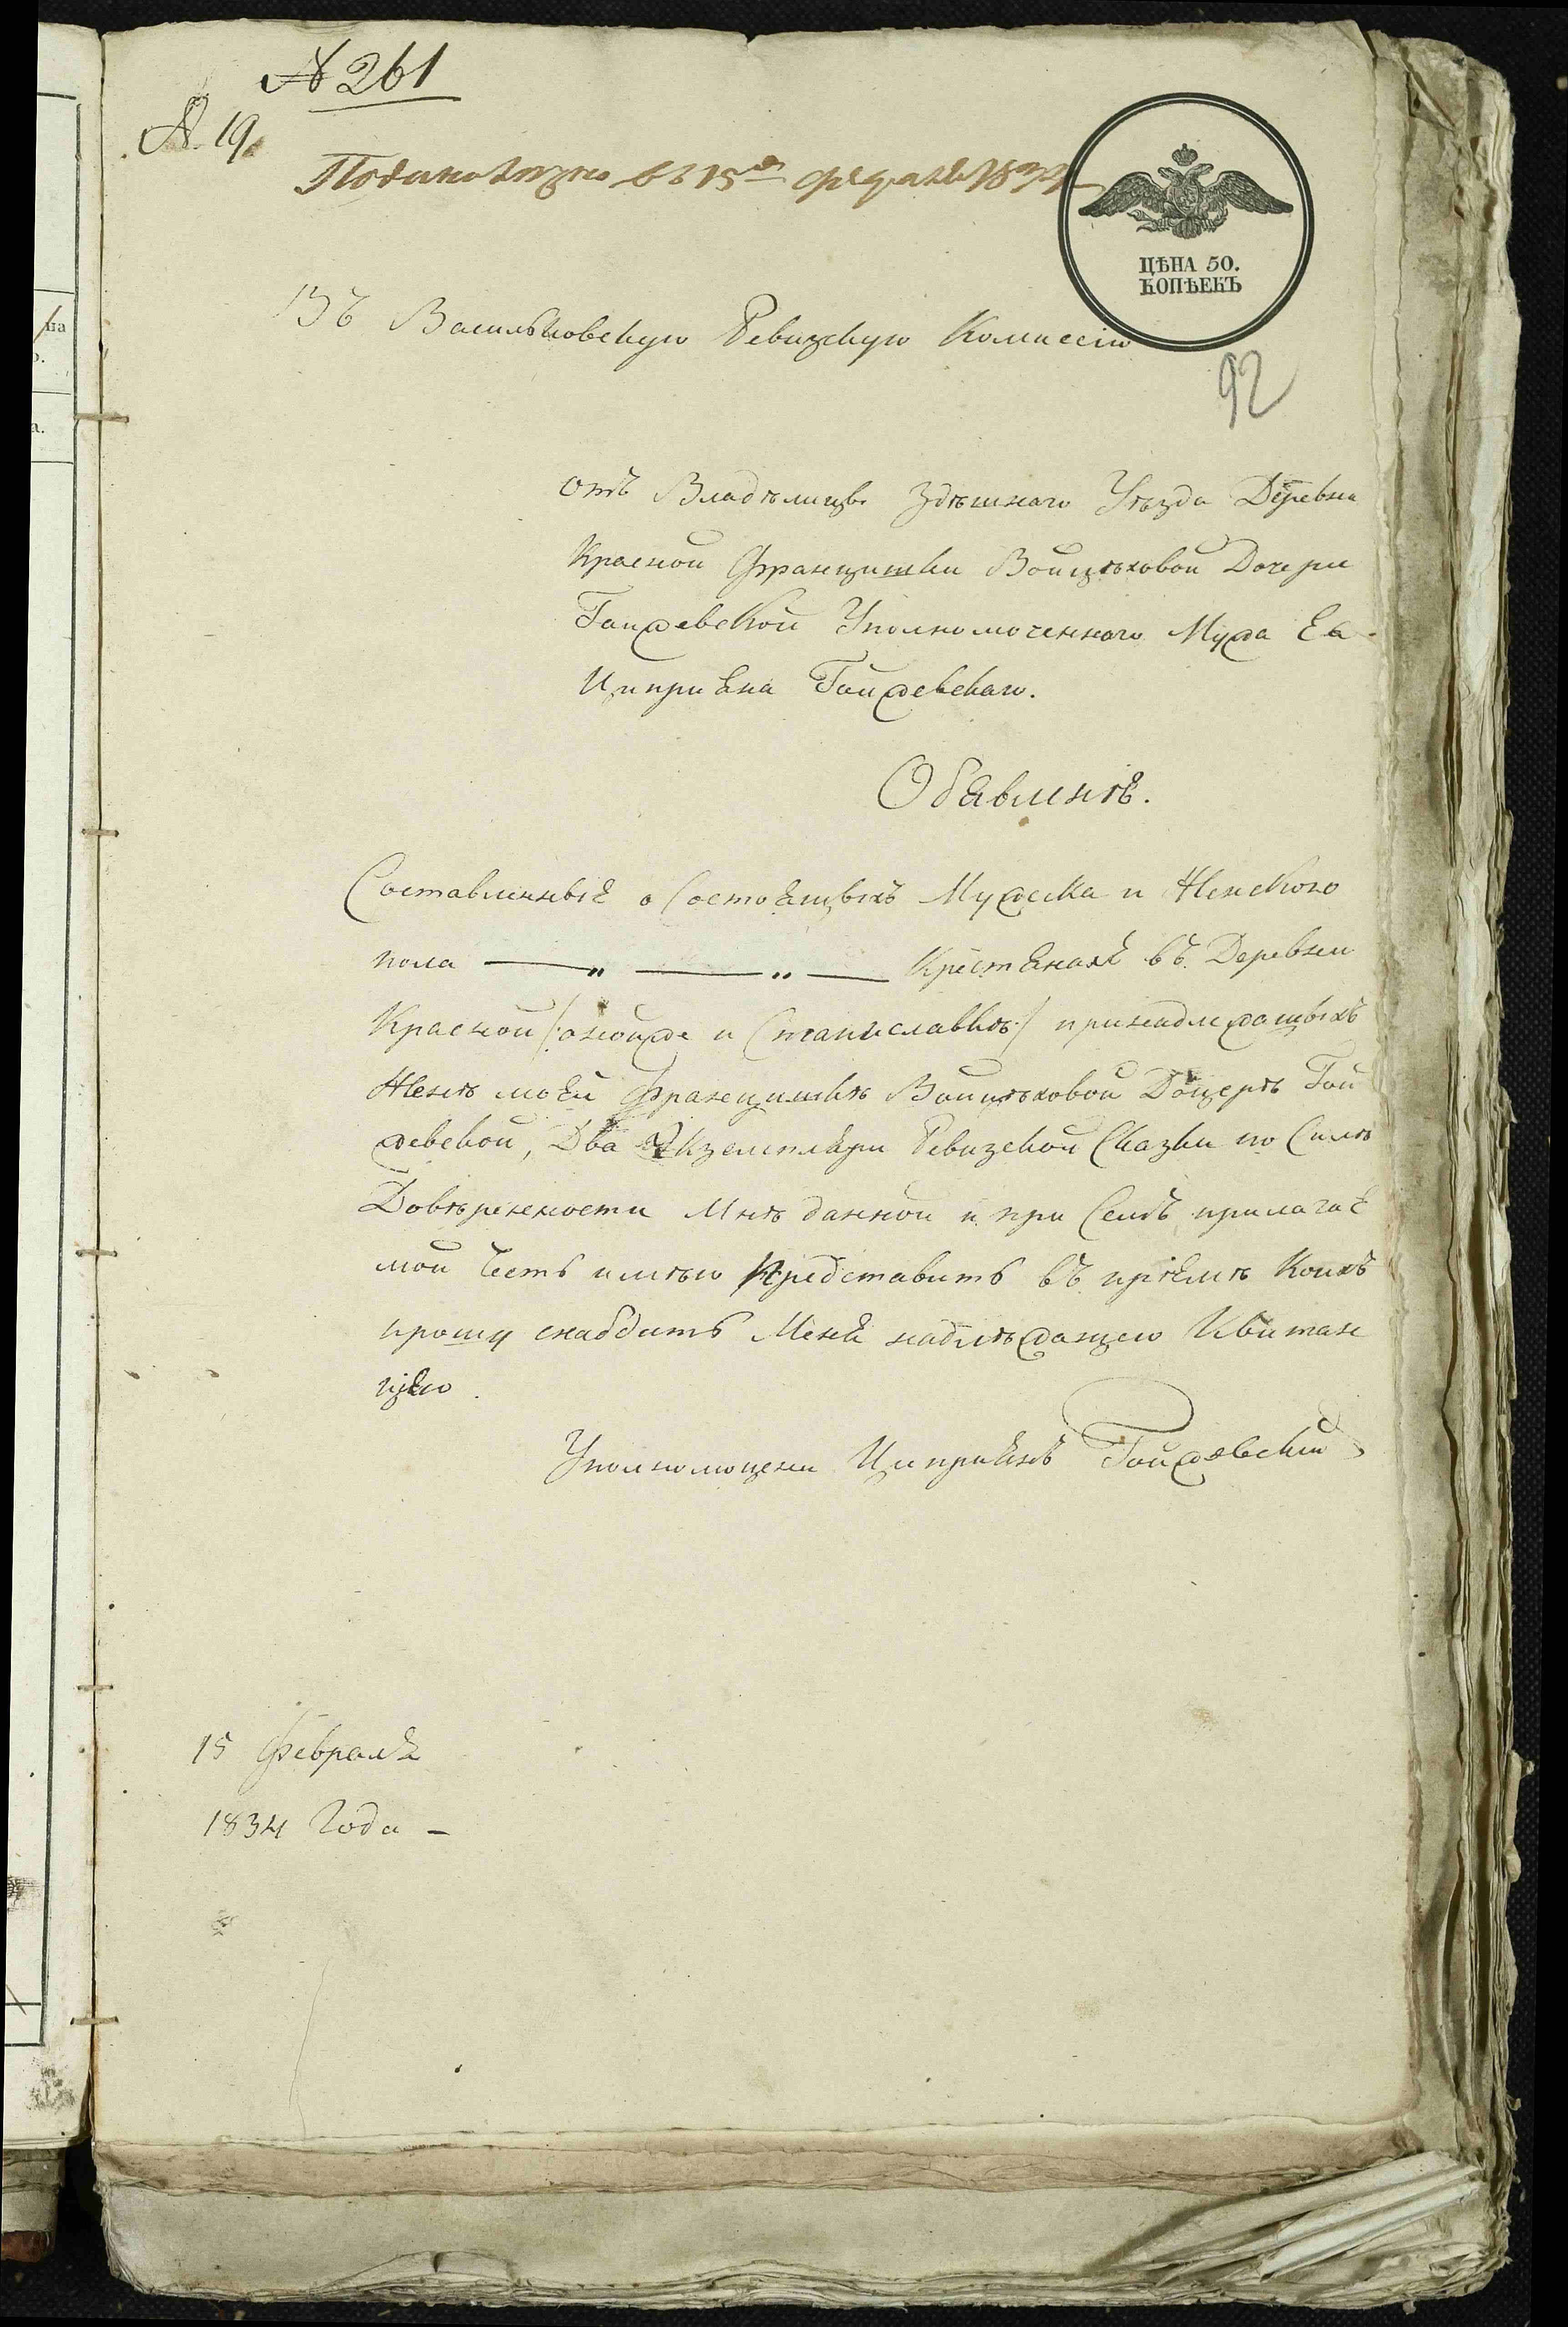 № 261
№ 19
Подано 15го 1834
ЦѢНА 50.
КОПѢЕКЪ
Въ Васильковскую Ревизскую Комиссію
92
отъ Владѣлицы Здѣшнаго Уѣзда Деревни
Красной Францишки Войцѣховой Дочери
Гайжевской Уполномоченнаго Мужа Ея
Циприяна Гайжевскаго.
Обявлинѣе.
Составлинныя о Состоящыхъ Мужеска и Женскаго
пола —— „ —— „ —— Крестянахъ въ Деревни
Красной /: онойже и Станиславкѣ :/ принадлежащыхъ
Женѣ моей Францишкѣ Войцѣховой Доцерѣ Гай
жевской, Два Экземпляри Ревизской Сказки по Силѣ
Довѣренности Мнѣ данной и при Семъ прилагає
мой Честь имѣю Представить въ приємѣ Коихъ
прошу снабдить Меня надлѣжащею Квитан
циєю.
Уполномоцени Циприянъ Гайжевский
15 Февраля
1834 Года –